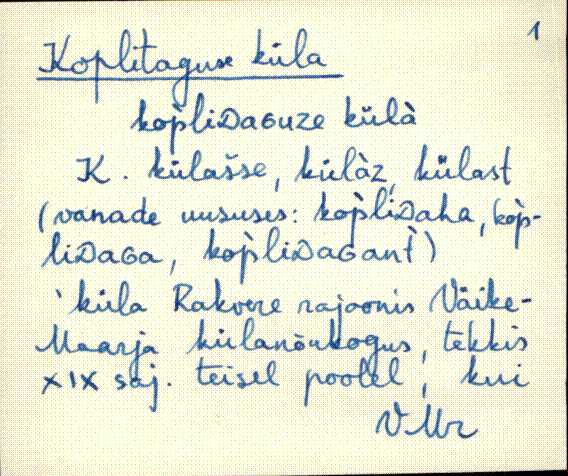 1
Koplitaguse küla
kop̀liᴅaɢuze külà
K. külašse, külàz, külast
(vanade uususes: kop̀liᴅaha, kop̀-
liᴅaɢa, kop̀liᴅaɢant̀)
'küla Rakvere rajoonis Väike-
Maarja külanõukogus, tekkis
XIX saj. teisel poolel, kui
VMr